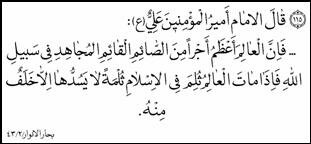 ﴿١١٥﴾ قَالَ الاِمَامُ أَمِيرُ الْمُؤْمِنِينَ عَلِيٌّ (ع):
... فَاِنَّ الْعَالِمَ أَعْظَمُ أَجْراً مِنَ الصَّائِمِ الْقَائِمِ الْمُجَاهِدِ فِى سَبِيلِ
اللهِ فَاِذَا مَاتَ الْعَالِمُ ثُلِمَ فِى الاِسْلَامِ ثُلْمَةٌ لَا يَسُدُّهَا اِلاَّ خَلَفٌ
مِنْهُ.
بحار الانوار ٤٣/٢